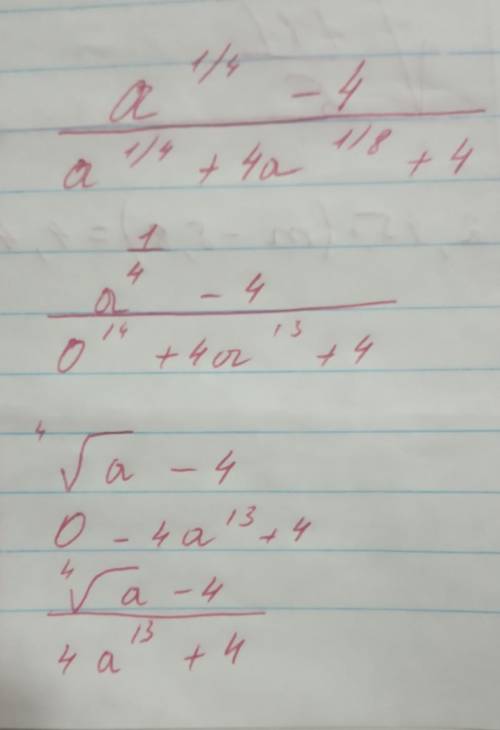 a^1/4 - 4
a^1/4 + 4a^1/8 + 4
a^1/4 - 4
0^14 + 4a^13 + 4
⁴√a - 4
0 - 4a^13 + 4
⁴√a - 4
4a^13 + 4